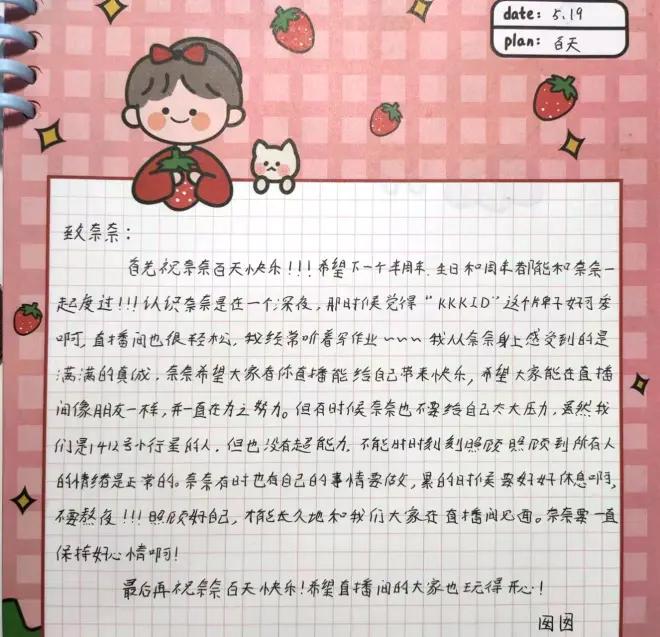 date: 5.19
plan: 百天
致奈奈：
首先祝奈奈百天快乐！！！希望下一个半周年、生日和周年都能和奈奈一
起度过！！！认识奈奈是在一个深夜，那时候觉得“KKKID”这个牌子好可爱
啊，直播间也很轻松，我经常听着写作业~~~我从奈奈身上感受到的是
满满的真诚，奈奈希望大家看你直播能给自己带来快乐，希望大家能在直播
间像朋友一样，并一直在为之努力。但有时候奈奈也不要给自己太大压力，虽然我
们是1412号小行星的人，但也没有超能力，不能时时刻刻照顾照顾到所有人
的情绪是正常的。奈奈有时也有自己的事情要做，累的时候要好好休息啊，
不要熬夜！！！照顾好自己，才能长久地和我们大家在直播间见面。奈奈要一直
保持好心情啊！
最后再祝奈奈百天快乐！希望直播间的大家也玩得开心！
囡囡